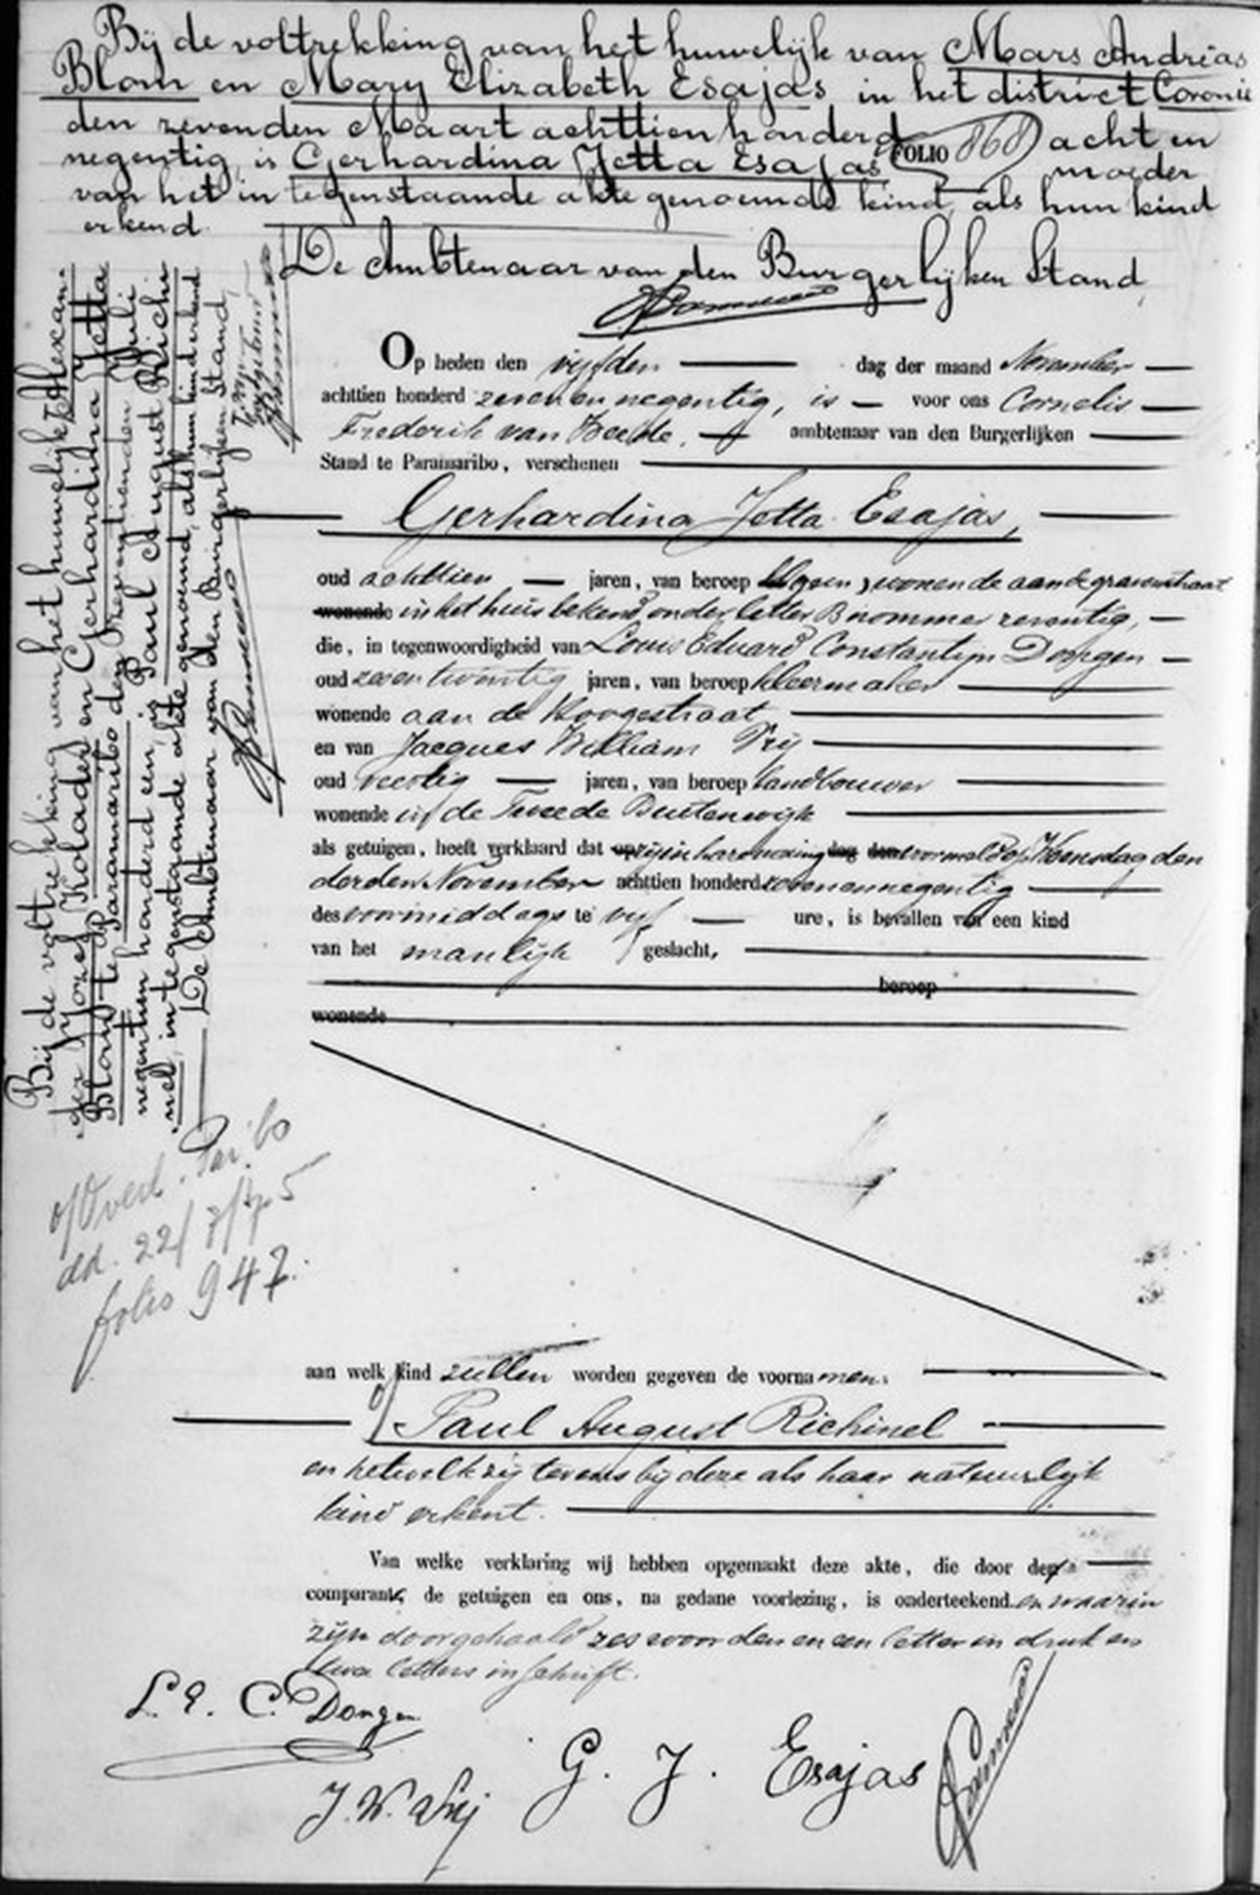 Bij de voltrekking van het huwelijk van Mars Andreas
Blom en Mary Elizabeth Esajas in het district Coronie
den zevenden Maart achttien honderd acht en
negentig, is Gerhardina Jetta Esajas moeder
FOLIO 868
van het in tegenstaande akte genoemde kind, als hun kind
erkend.
De Ambtenaar van den Burgerlijken Stand,
Bij de voltrekking van het huwelijk v. Alexan-
der Jozef Kolader en Gerhardina Jetta
Blom te Paramaribo den zeventienden Juli
negentien honderd een, is Paul August Richi-
nel, in tegenstaande akte genoemd, als hun kind erkend
De Ambtenaar van den Burgerlijken Stand,
o/Overl. Par.bo
dd. 22/7/75
folio 947.
Op heden den vijfden dag der maand November
achttien honderd zeven en negentig, is voor ons Cornelis
Frederik van ambtenaar van den Burgerlijken
Stand te Paramaribo, verschenen
Gerhardina Jetta Esajas,
oud achttien jaren, van beroep wonende aan de gravenstraat
wonende in het huis bekend onder letter B nommer zeventig,
die, in tegenwoordigheid van Louis Eduard Constantijn Dongen
oud zeven twintig jaren, van beroep kleermaker
wonende aan de Hoogestraat
en van Jacques William Vrij
oud veertig jaren, van beroep landbouwer
wonende in de Tweede Buitenwijk
als getuigen, heeft verklaard dat op zij in hare woning dag den voormeld op Woensdag den
derden November achttien honderd zeven en negentig
des voormiddags te vijf ure, is bevallen van een kind
van het manlijk geslacht,
beroep
wonende
aan welk kind zullen worden gegeven de voornamen
Paul August Richinel
en hetwelk zij tevens bij deze als haar natuurlijk
kind erkent.
Van welke verklaring wij hebben opgemaakt deze akte, die door de
comparante, de getuigen en ons, na gedane voorlezing, is onderteekend en waarin
zijn doorgehaald zes woorden en een letter in druk en
twee letters in schrift.
L. E. C. Dongen
G. J. Esajas
J. W. Vrij